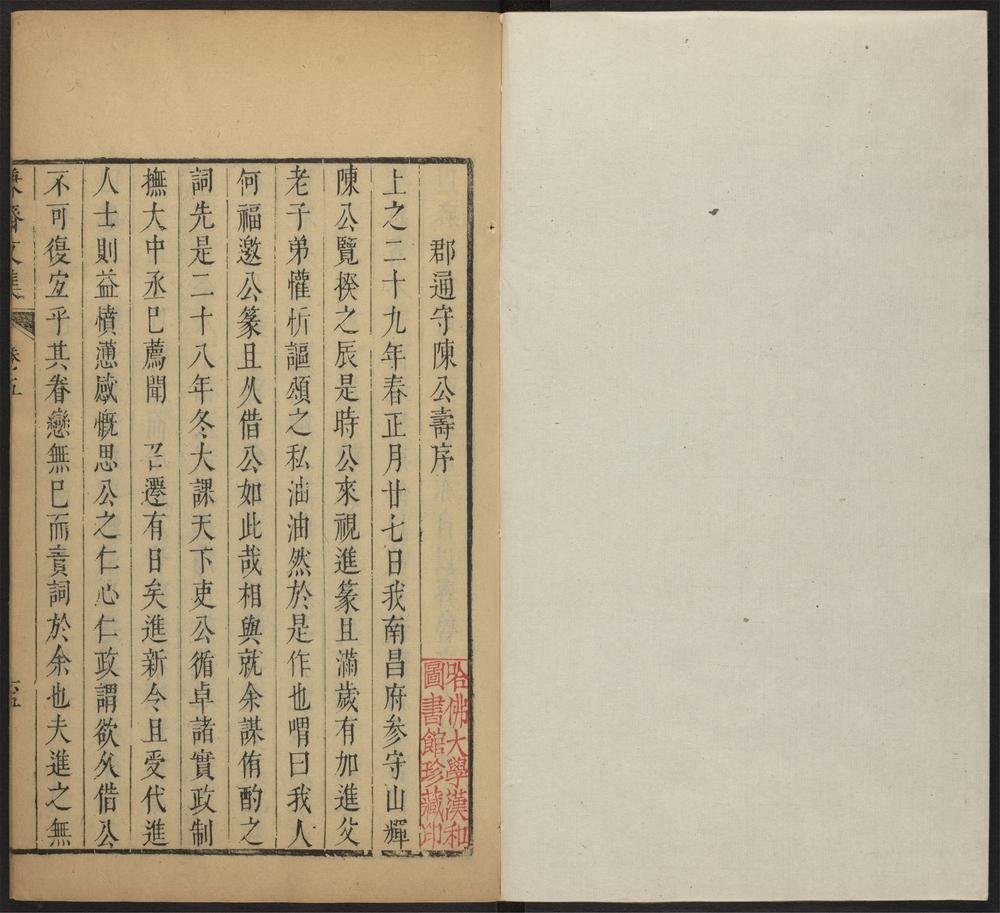 郡通守陳公壽序
上之二十九年春正月廿七日我南昌府參守山輝
陳公覽揆之辰是時公來視進篆且滿歲有加進父
老子弟懽忻謳頌之私油油然於是作也喟曰我人
何福邀公篆且久借公如此哉相與就余謀侑酌之
詞先是二十八年冬大課天下吏公循卓諸實政制
撫大中丞巳薦聞 召遷有日矣進新令且受代進
人士則益憤懣感慨思公之仁心仁政謂欲久借公
不可復宜乎其眷戀無巳而責詞於余也夫進之無
齋文集 卷五
哈佛大學漢和
圖書館珍藏印